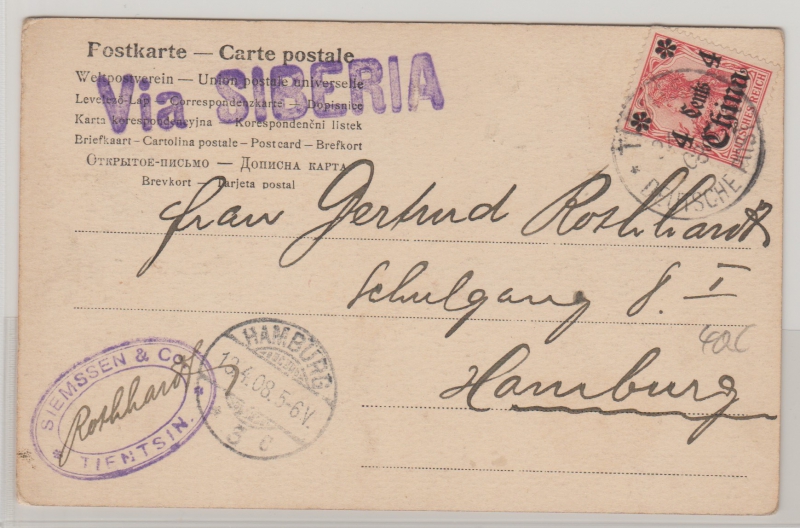 Postkarte — Carte postale
Weltpostverein — Union postale universelle
Levelező-Lap — Correspondenzkarte — Dopisnice
Karta korespondencyjna — Korespondenční listek
Briefkaart — Cartolina postale — Postcard — Brefkort
Открытое-письмо — Дописна карта
Brevkort — Tarjeta postal
Via SIBERIA
4 4
Cents
China
DEUTSCHES REICH
DEUTSCHE
Frau Gertrud Rothhardt
Schulgang 8. I
40.-
Hamburg
SIEMSSEN & Co.
Rothhardt
TIENTSIN.
HAMBURG
13.4.08.5-6V.